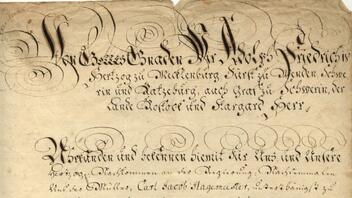 Von Gottes Gnaden Wir Adolph Friedrich
Hertzog zu Mecklenburg, Fürst zu Wenden, Schwe
rin und Ratzeburg, auch Graf zu Schwerin, der
Lande Rostock und Stargard Herr,
Uhrkunden und bekennen hiemit Für Uns und Unsere
Hertzogl. Nachkommen an der Regierung, Nachdemmalen
Uns der Müller, Carl Jacob